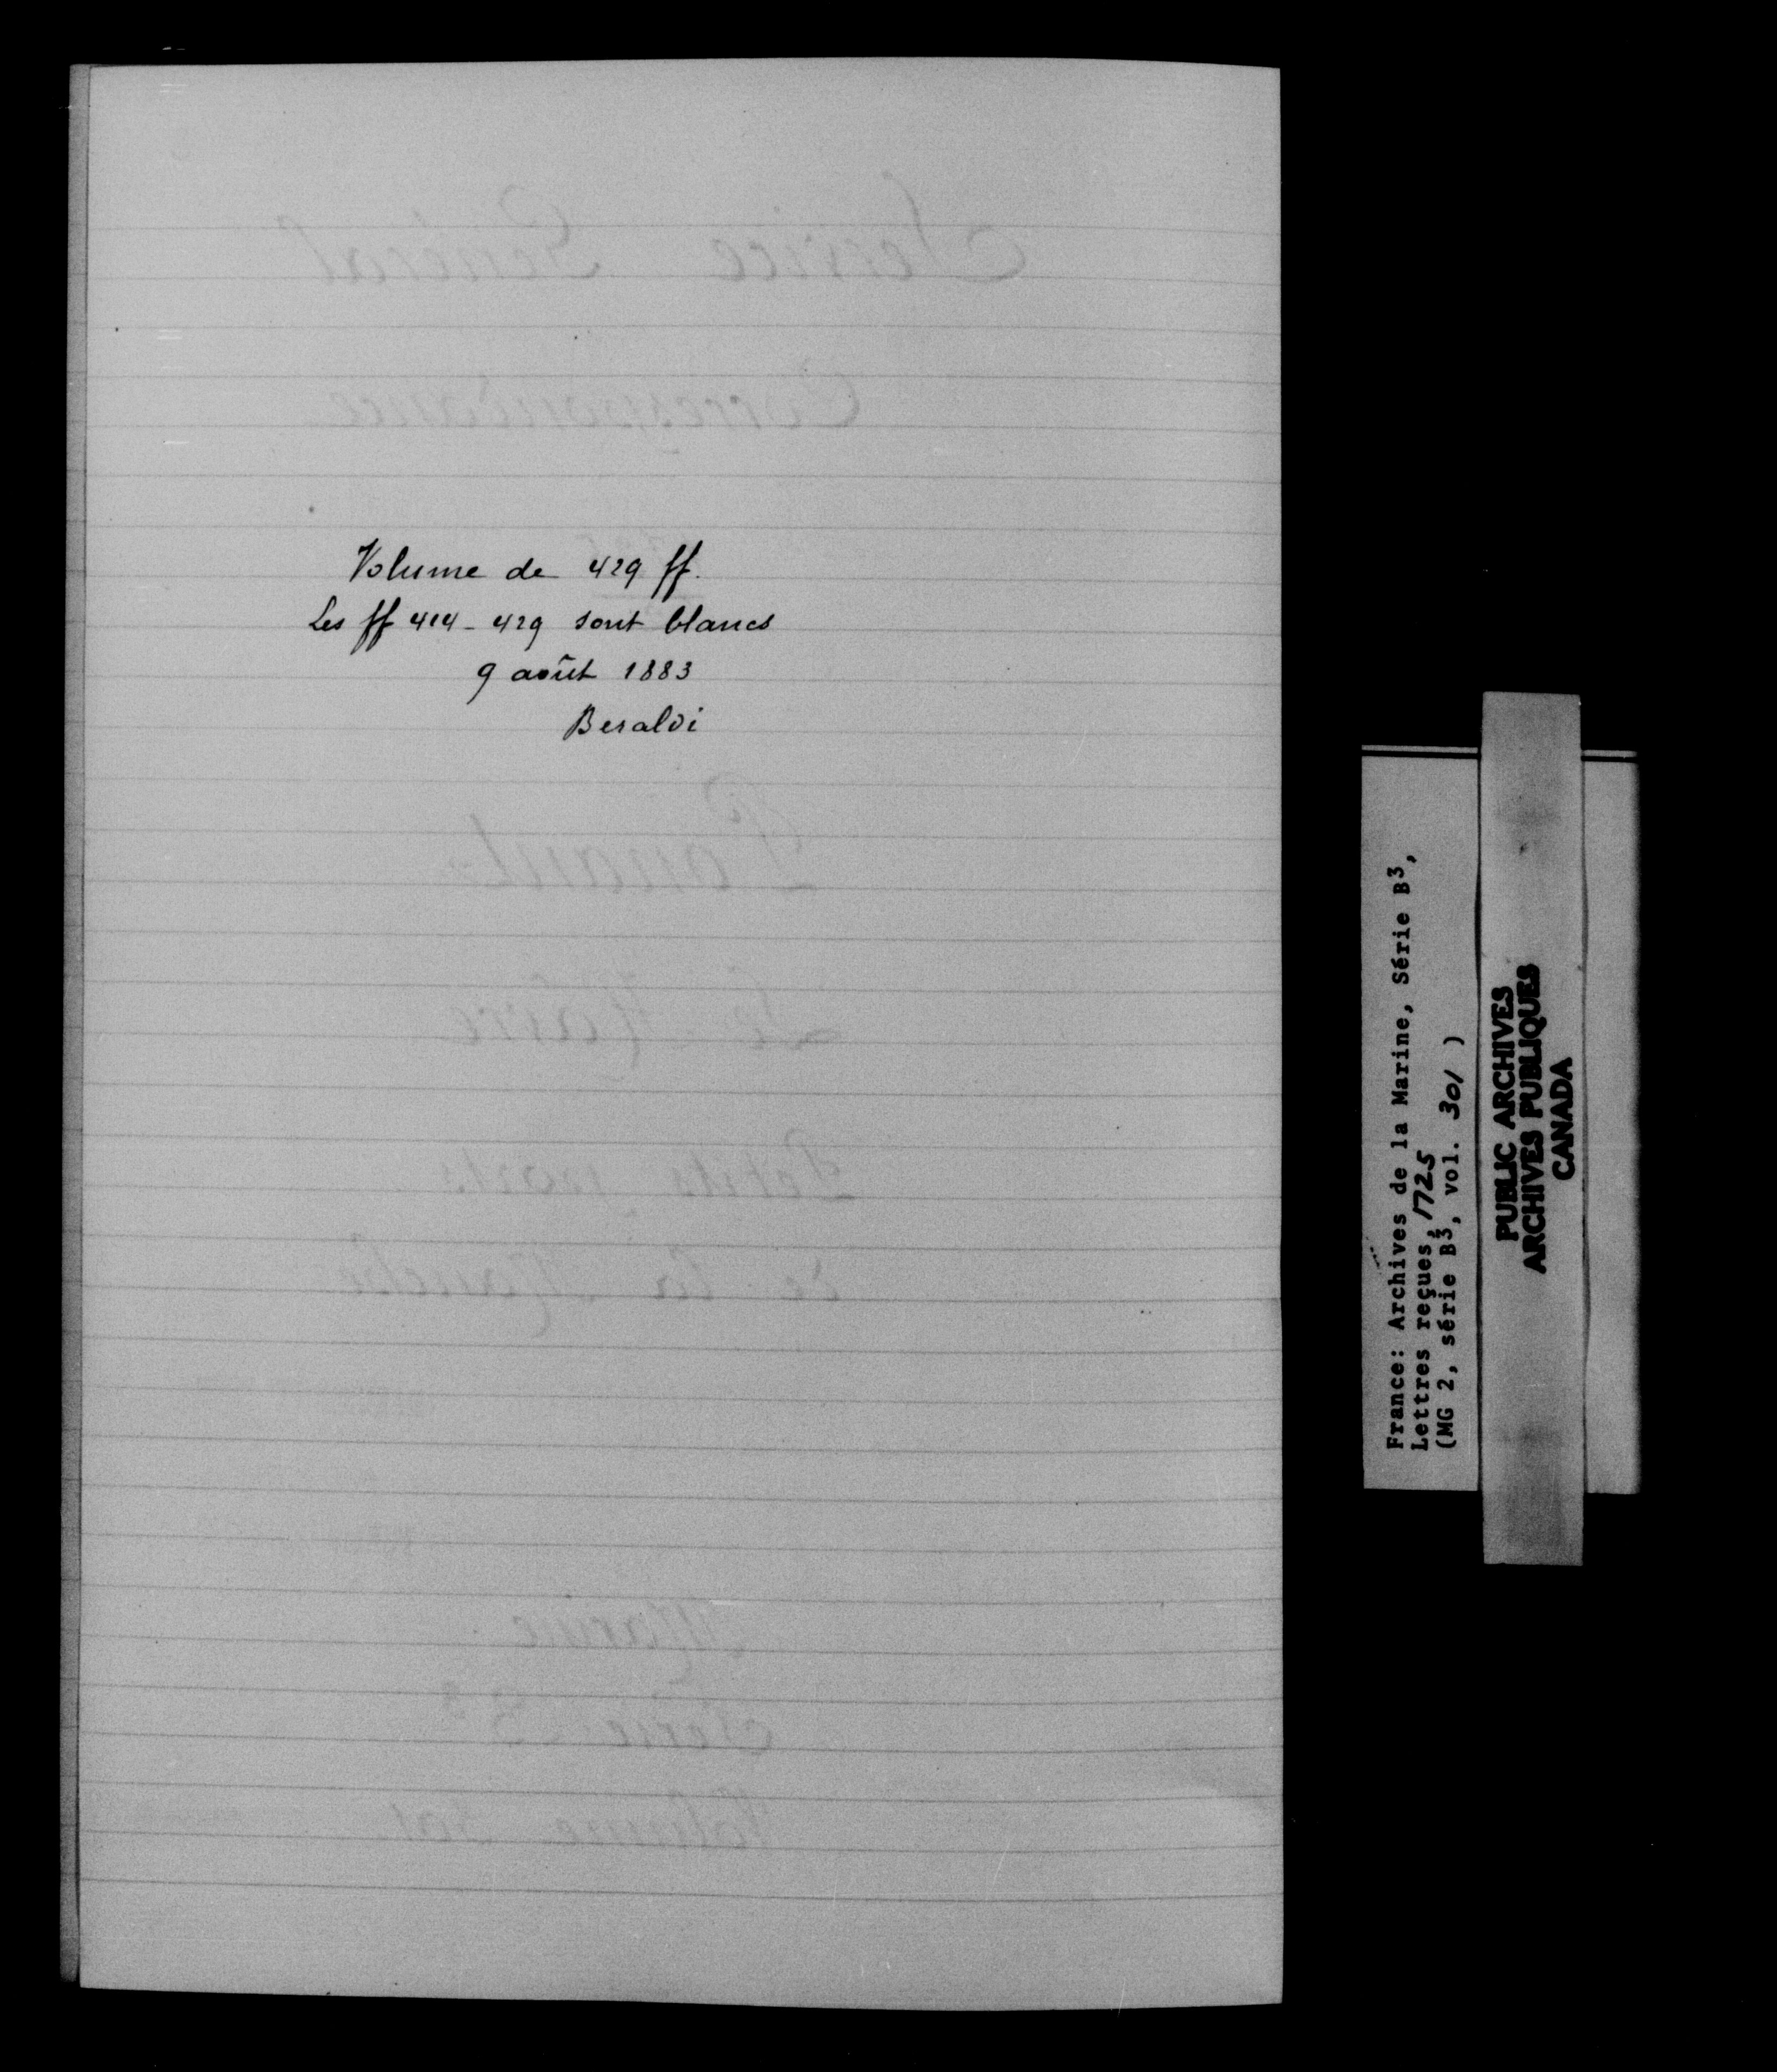 Volume de 429 ff.
Les ff 414-429 sont blancs
9 août 1883
Beraldi
France: Archives de la Marine, Série B3,
Lettres reçues, 1725
(MG 2, série B3, vol. 301 )
PUBLIC ARCHIVES
ARCHIVES PUBLIQUES
CANADA